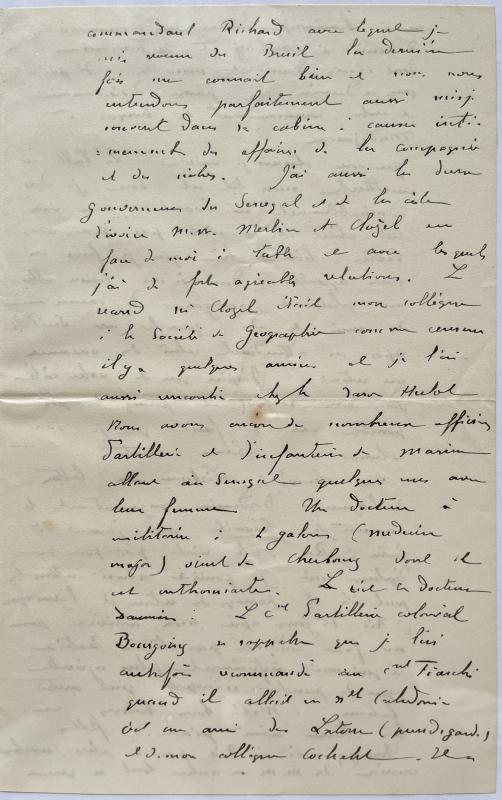 commandant Richard avec lequel je
suis revenu du Bresil la dernière
fois me connait bien et nous nous
entendons parfaitement aussi suis-je
souvent dans sa cabine à causer inti-
=mement des affaires de la compagnie
et des
J'ai aussi les deux
gouverneurs du Senegal et de la côte
d'ivoire M.M. Merlin et Clozel en
face de moi à table et avec lesquels
j'ai de forts agréables relations. Le
second M. Clozel était mon collègue
à la Société de Geographie comme censeur
il y a quelques années et je l'ai
aussi rencontré chez le baron Hulot
Nous avons encore de nombreux officiers
d'artillerie et d'infanterie de marine
allant au Senegal quelques uns avec
leur femme Un docteur
militaire à 4 galons (medecin
major) vient de Cherbourg dont il
est enthousiaste. Le docteur
Le Cnel d'artillerie colonial
Bourgoing se rappelle que je l'ai
autrefois recommandé au
quand il allait en Nlle Caledonie
c'est un ami des
et de mon collègue